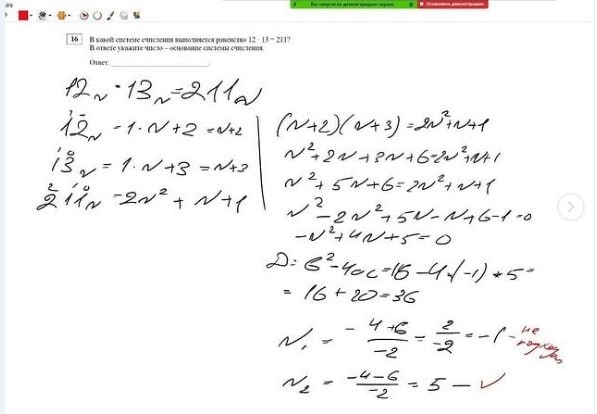 Вы запустили демонстрацию экрана
Остановить демонстрацию
16 В какой системе счисления выполняется равенство 12 · 13 = 211?
В ответе укажите число – основание системы счисления.
Ответ:
12N · 13N = 211N
12N = 1·N + 2 = N+2
13N = 1·N + 3 = N+3
211N = 2N² + N + 1
(N+2)(N+3) = 2N²+N+1
N²+2N+3N+6=2N²+N+1
N²+5N+6=2N²+N+1
N²-2N²+5N-N+6-1=0
-N²+4N+5=0
D=b²-4ac=16-4·(-1)·5=
=16+20=36
N₁ = -4+6/-2 = 2/-2 = -1 - не подходит
N₂ = -4-6/-2 = 5 - ✓